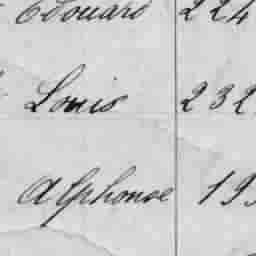 Edouard 224
Louis 232
Alphonse 19